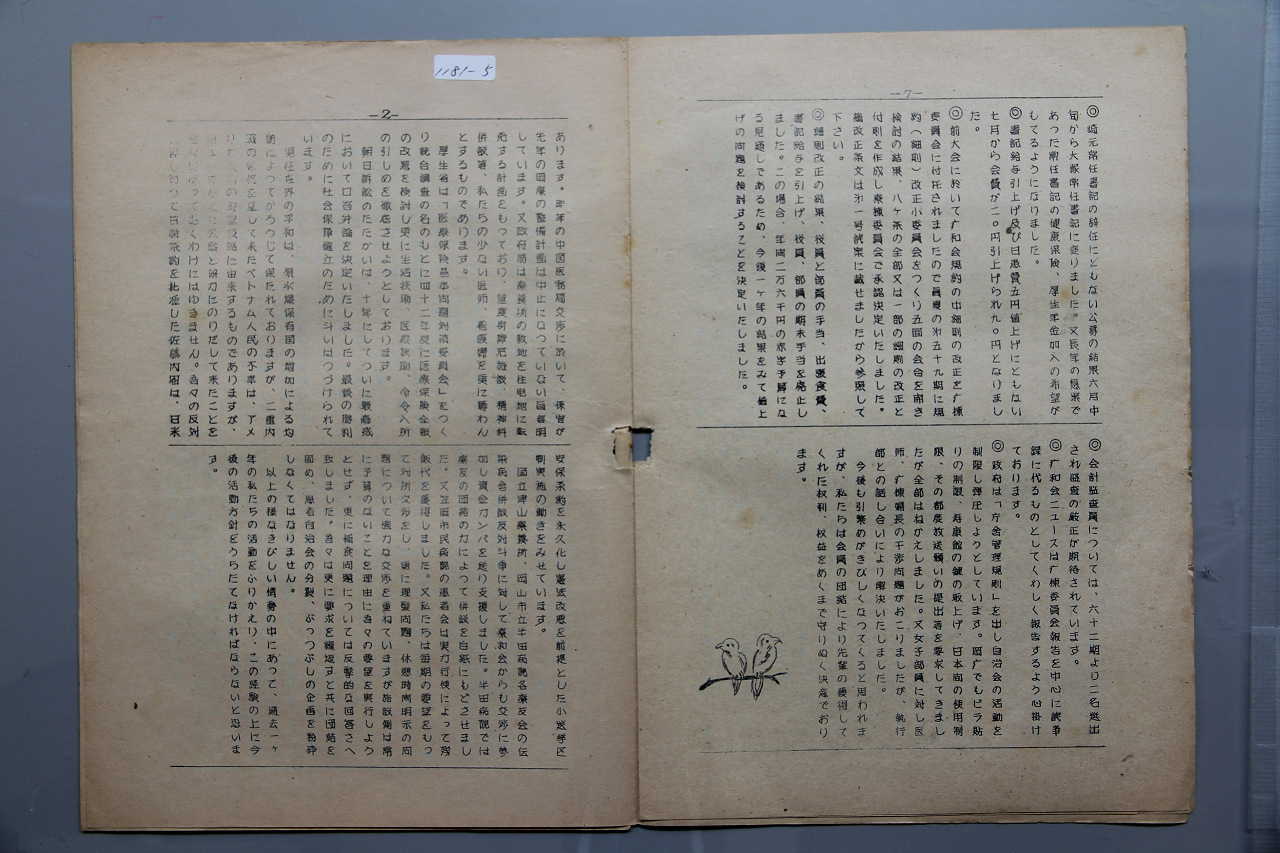 1181-5
—7—
◎ 崎元常任書記の辞任にともない公募の結果六月中
旬から大塚常任書記に変りました。又長年の懸案で
あった常任書記の健康保険、厚生年金加入の希望が
もてるようになりました。
◎ 書記給与引上げ及び日患費五円値上げにともない
七月から会費が二〇円引上げられ九〇円となりまし
た。
◎ 前大会に於いて広和会規約の中細則の改正を広棟
委員会に付托されましたので員規の第五十九期に規
約(細則)改正小委員会をつくり五回の会合を開き
検討の結果、八ヶ条の全部又は一部の細則の改正と
付則を作成し療棟委員会で承認決定いたしました。
尚改正条文は第一号議案に載せましたから参照して
下さい。
◎ 細則改正の結果、役員と部員の手当、出張食費、
書記給与を引上げ、役員、部員の期末手当を廃止し
ました。この場合、年間二万六千円の赤字予算にな
る見通しであるため、今後一ヶ年の結果をみて値上
げの問題を検討することを決定いたしました。
◎ 会計監査員については、六十二期より二名選出
され監査の厳正が期待されています。
◎ 広和会ニュースは広棟委員会報告を中心に議事
録に代るものとしてくわしく報告するよう心掛け
ております。
◎ 政府は「庁舎管理規則」を出し自治会の活動を
制限し弾圧しようとしています。岡広でもビラ貼
りの制限、寿康館の鍵の取上げ、日本間の使用制
限、その都度放送願いの提出等を要求してきまし
たが全部はねかえしました。又女子部員に対し医
師、広棟婦長の干渉問題がおこりましたが、執行
部との話し合いにより解決いたしました。
今後も引緊めがきびしくなってくると思われま
すが、私たちは会員の団結により先輩の獲得して
くれた权利、权益をあくまで守りぬく決意でおり
ます。
—2—
あります。昨年の中国医務局交渉に於いて、保官が
先年の岡療の整備計画は中止になっていない旨言明
しています。又政府筋は療養所の敷地を住宅地に転
売する計画をもっており、重度身障厄施設、精神科
併設等、私たちの少ない医師、看護婦を更に奪わん
とするものであります。
厚生省は「医療保険基本問題対策委員会」をつく
り統合調査の名のもとに四十二年度に医療保険全般
の改悪を検討し更に生活扶助、医療扶助、命令入所
の引しめを徹底させようとしております。
朝日訴訟のたたかいは、十年にしてついに最高裁
において口答弁論を決定いたしました。最後の勝利
のために社会保障確立のために斗いはつづけられて
います。
現在世界の平和は、原水爆保有国の増加による均
衡によってかろうじて保たれておりますが、二重内
戦の惨禍を通して来たベトナム人民の不幸は、アメ
に由来するものでありますが、
協力にのりだして来たことを
わけにはゆきません。吾々の反対
を押し切って日韓条約を批准した佐藤内閣は、日米
安保条約を永久化し憲法改悪を前提とした小選挙区
制実施の動きをみせています。
国立津山療養所、岡山市立半田病院各療友会の伝
染病舎併設反対斗争に対して療和会からも交渉に参
加し資金カンパを送り支援しました。半田病院では
療友の団結の力によって併設を白紙にもどさせまし
た。又笠岡市民病院の患者会は実力行使によって残
飯代を獲得しました。又私たちは毎期の要望をもっ
て対所交渉をし、更に理髪問題、休憩時間明示の問
題について強力な交渉を重ねていますが施設側は常
に予算のないことを理由に吾々の要望を実行しよう
とせず、更に補食問題については反撃的な回答さへ
致しました。吾々は更に要求を繰返すと共に団結を
固め、患者自治会の分裂、ぶっつぶしの企画を粉砕
しなくてはなりません。
以上の様なきびしい情勢の中にあって、過去一ヶ
年の私たちの活動をふりかえり、この経験の上に今
後の活動方針をうちたてなければならないと思いま
す。